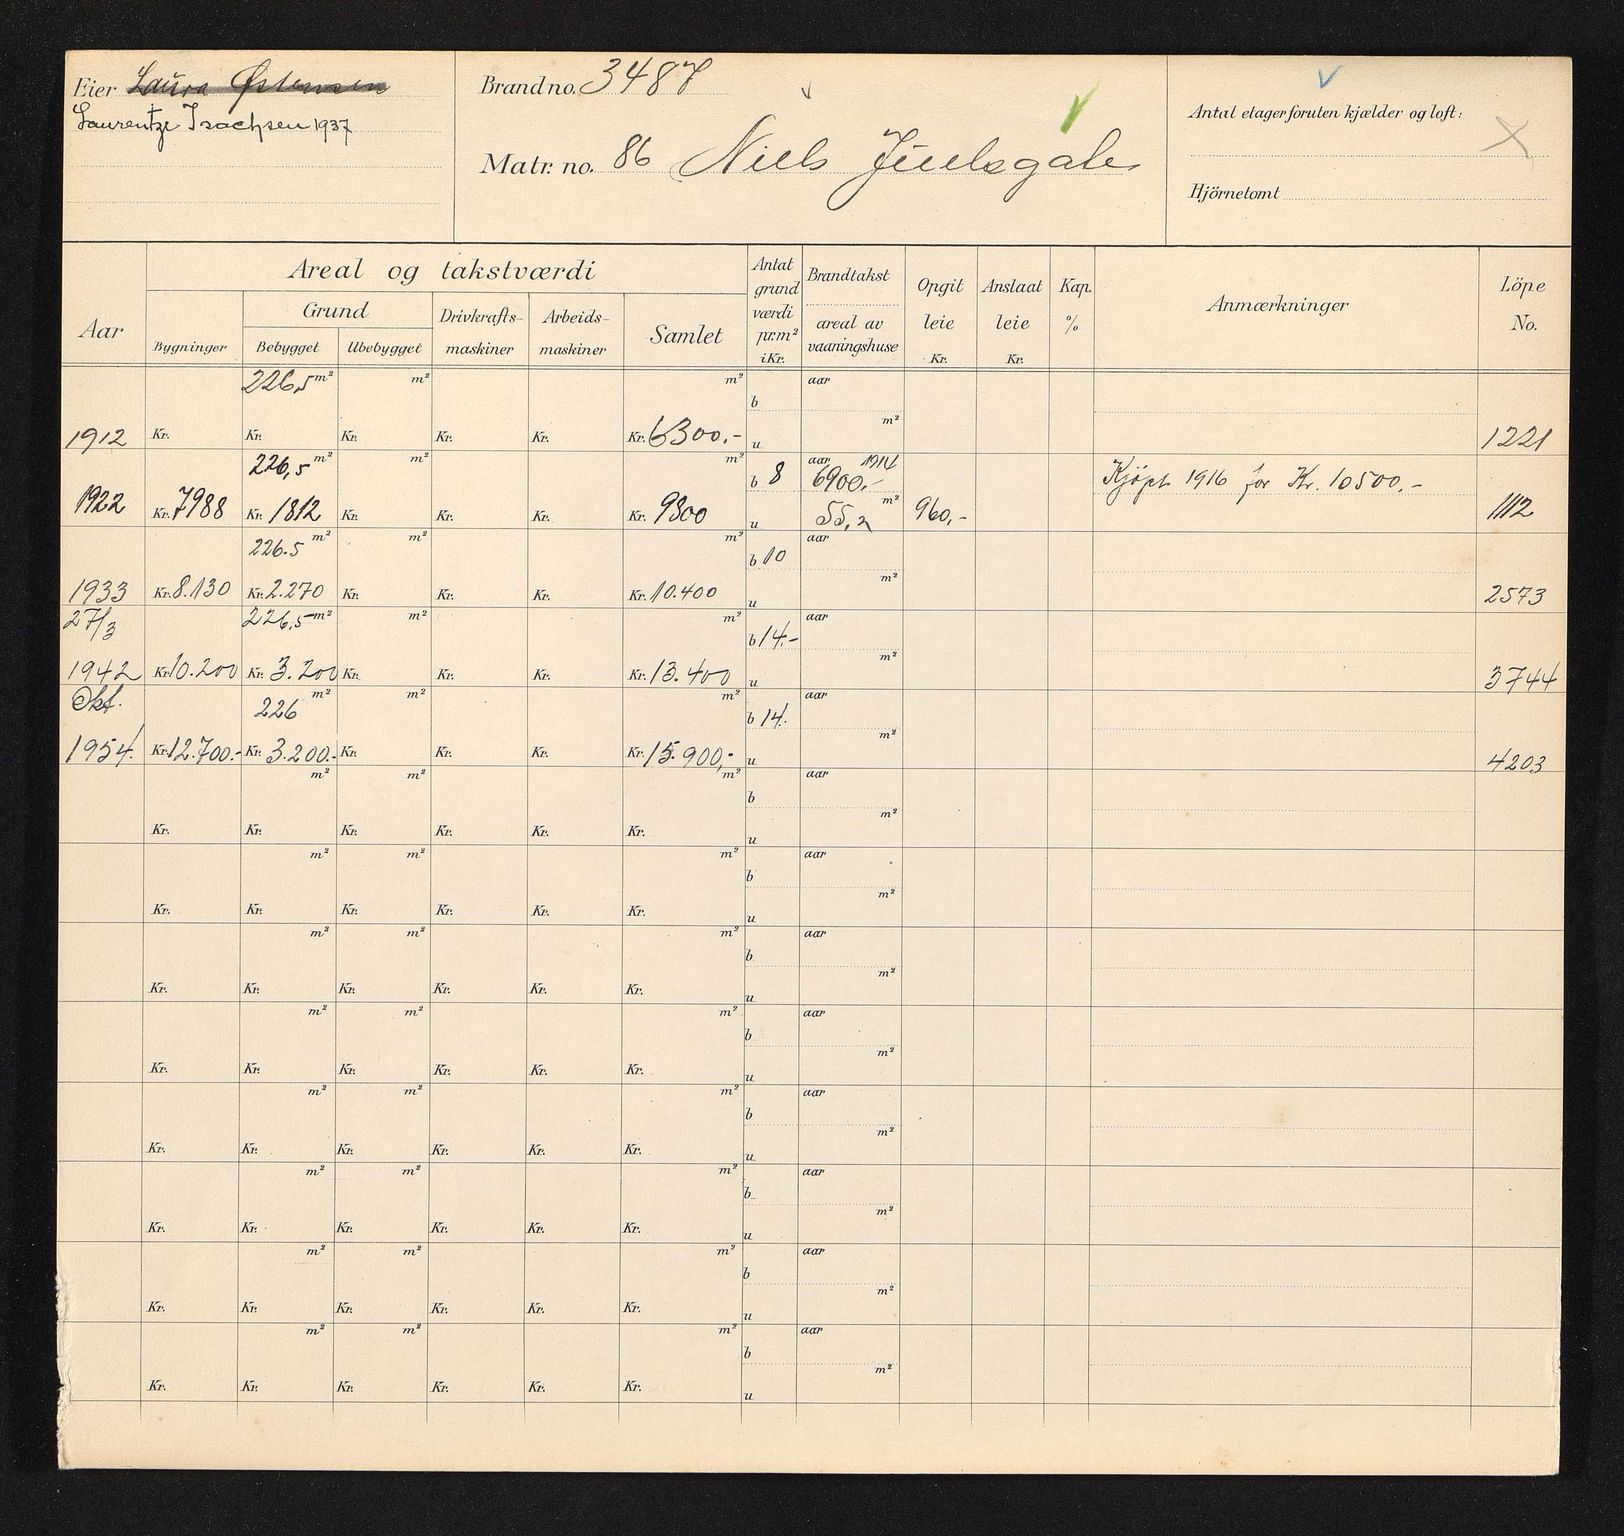 Eier Laura Østensen
Laurentze Isachsen 1937
Brand no. 3487
Matr. no. 86 Niels Juelsgate
Antal etager foruten kjælder og loft:
Hjörnetomt
Aar
Areal og takstværdi
Bygninger
Grund
Bebygget Ubebygget
Drivkrafts-maskiner
Arbeids-maskiner
Samlet
Antat grund værdi pr. m² i Kr.
Brandtakst
areal av vaaningshuse
Opgit leie Kr.
Anslaat leie Kr.
Kap. %
Anmærkninger
Löpe No.
226,5 m² m² m² b aar
m²
1912 Kr. Kr. Kr. Kr. Kr. Kr. 6300.- u 1221
226,5 m² m² m² b 8 aar 1914 6900,- Kjøpt 1916 for Kr. 10500.-
m²
1922 Kr. 7988 Kr. 1812 Kr. Kr. Kr. Kr. 9800 u 55,2 960,- 1112
226.5 m² m² m² b 10 aar
m²
1933 Kr. 8.130 Kr. 2.270 Kr. Kr. Kr. Kr. 10.400 u 2573
27/3 226,5 m² m² m² b 14.- aar
m²
1942 Kr. 10.200 Kr. 3.200 Kr. Kr. Kr. Kr. 13.400 u 3744
Okt. 226 m² m² m² b 14. aar
m²
1954. Kr. 12.700.- Kr. 3.200.- Kr. Kr. Kr. Kr. 15.900,- u 4203
m² m² m² b aar
m²
Kr. Kr. Kr. Kr. Kr. Kr. u
m² m² m² b aar
m²
Kr. Kr. Kr. Kr. Kr. Kr. u
m² m² m² b aar
m²
Kr. Kr. Kr. Kr. Kr. Kr. u
m² m² m² b aar
m²
Kr. Kr. Kr. Kr. Kr. Kr. u
m² m² m² b aar
m²
Kr. Kr. Kr. Kr. Kr. Kr. u
m² m² m² b aar
m²
Kr. Kr. Kr. Kr. Kr. Kr. u
m² m² m² b aar
m²
Kr. Kr. Kr. Kr. Kr. Kr. u
m² m² m² b aar
m²
Kr. Kr. Kr. Kr. Kr. Kr. u